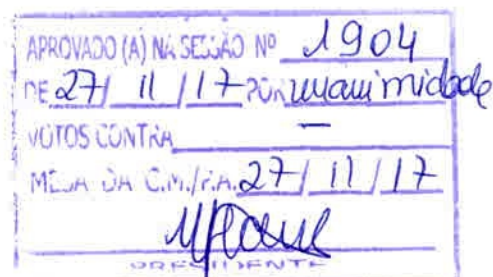 APROVADO (A) NA SESSÃO Nº 1904
DE 27/ 11 /17 POR unanimidade
VOTOS CONTRA —
MESA DA C.M./P.A. 27/ 11 /17
PRESIDENTE